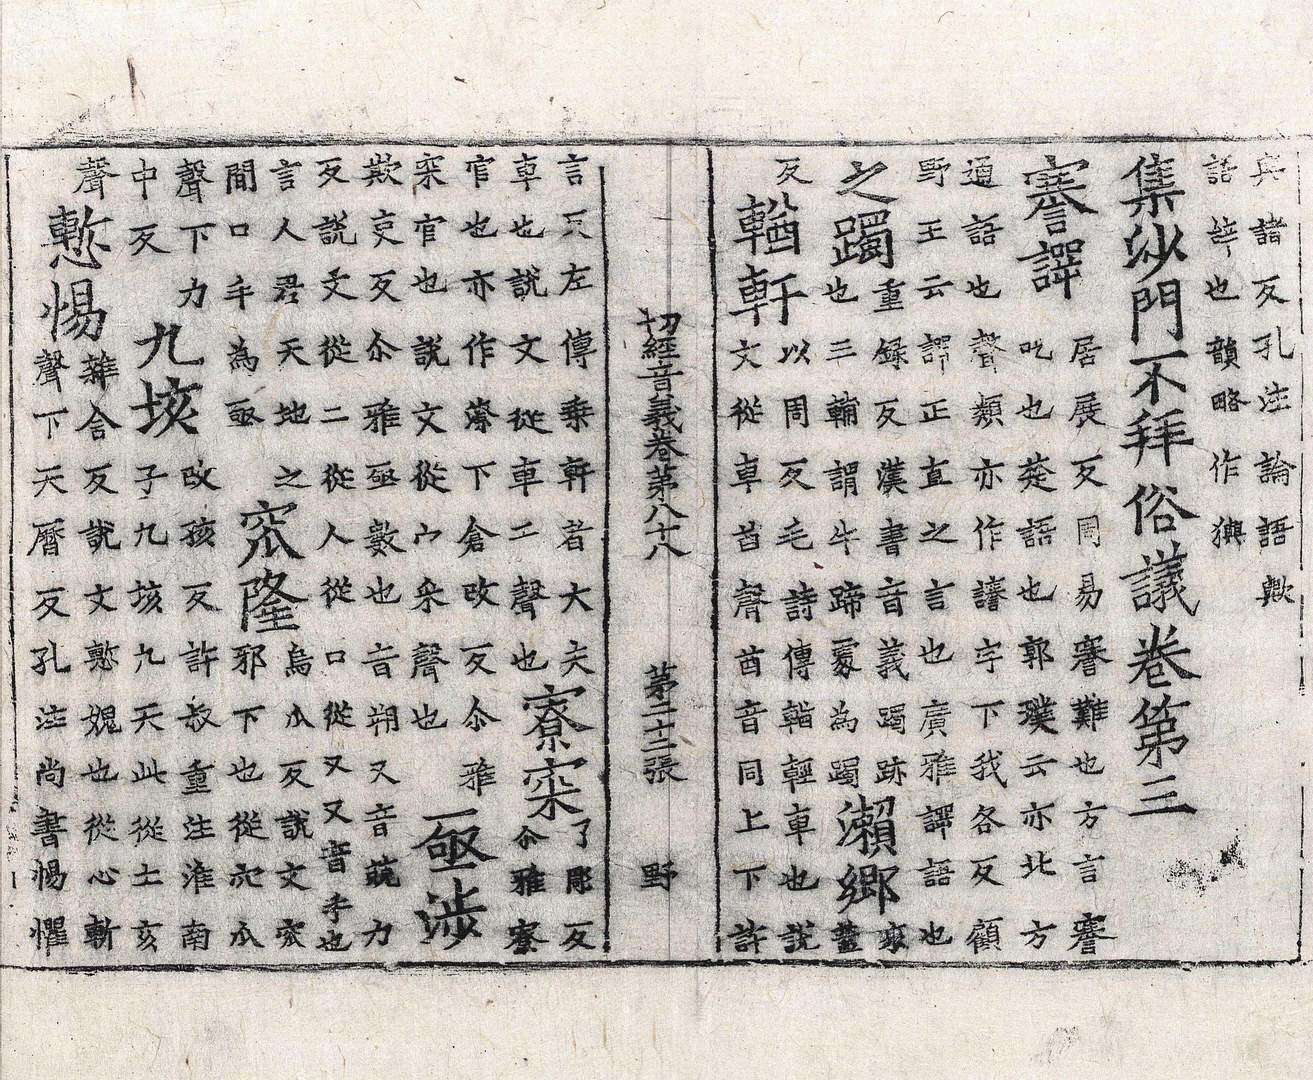 與諸反孔注論語歟
語辝也韻略作
集沙門不拜俗議卷第三
謇諤
居展反周易謇難也方言謇
吃也楚語也郭璞云亦北方
通語也聲類亦作字下我各反顧
野王云諤正直之言也廣雅諤語也
之躅
重録反漢書音義躅跡
也三輔謂牛蹄處為躅
瀨鄉
來
蓋
反
輶軒
以周反毛詩傳輶輕車也說
文從車酋聲酋音同上下許
切經音義卷第八十八 第二十二張 野
言反左傳乘軒者大夫
車也說文從車干聲也
寮寀
了彫反
尒雅寮
官也亦作寮下倉改反尒雅
寀官也說文從宀采聲也
亟涉
欺吏反尒雅亟數也音朔又音力
反說文從二從人從口從又又音手也
言人君天地之
間口手為亟
窊隆
烏瓜反說文窊
邪下也從穴瓜
聲下力
中反
九垓
改孩反許叔重注淮南
子九垓九天此從土亥
聲
慙惕
雜含反說文慙媿也從心斬
聲下天曆反孔注尚書惕懼